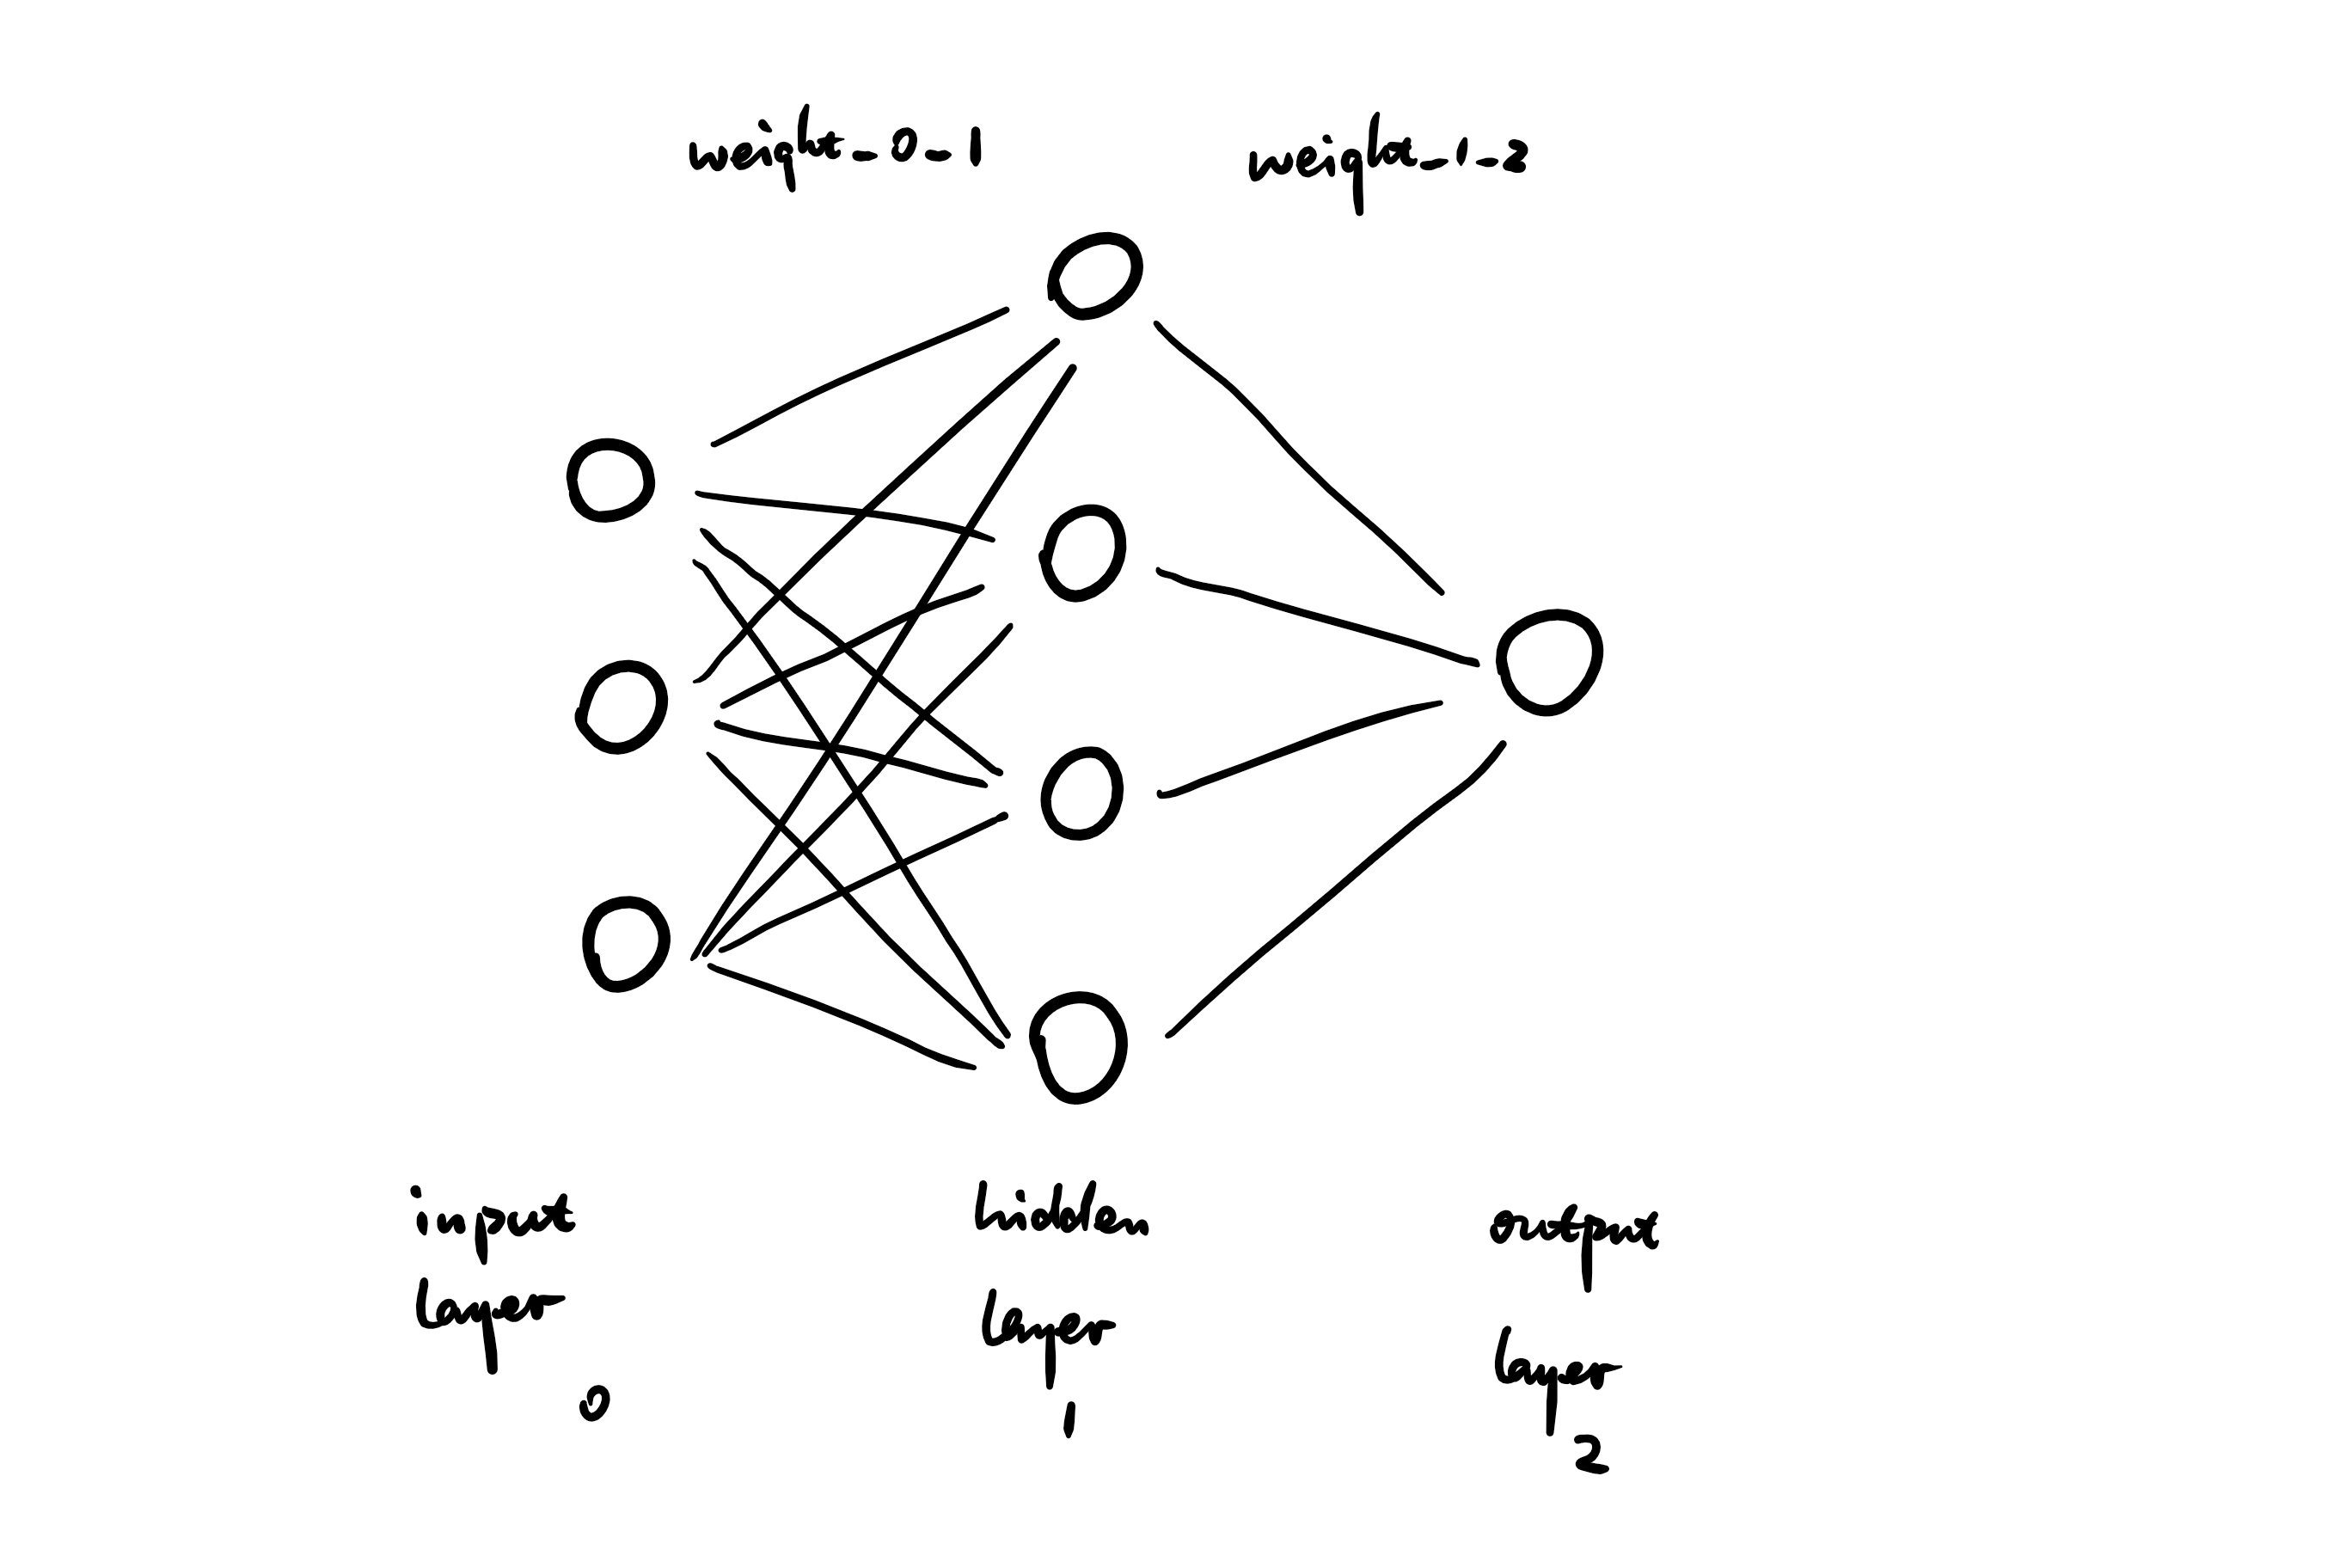 weight-0-1
weight-1-2
input
layer
0
hidden
layer
1
output
layer
2